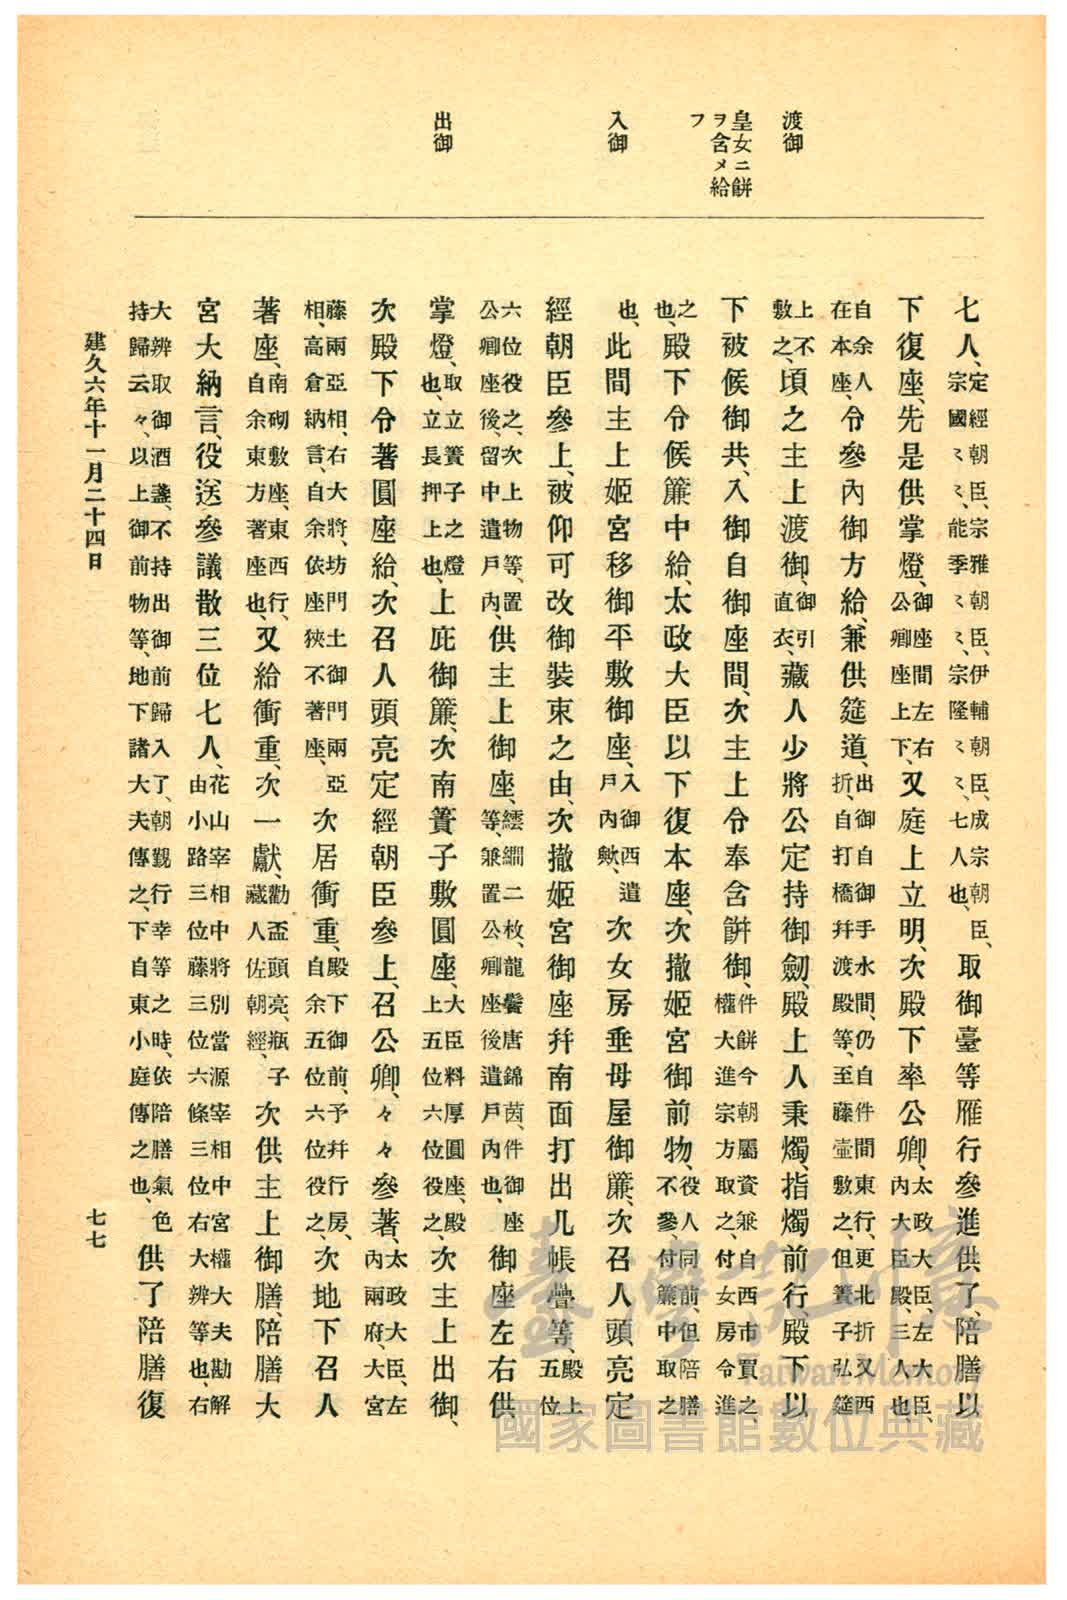 渡御
皇女ニ餅
ヲ含メ給
フ
入御
出御
七人、定經朝臣、宗雅朝臣、伊輔朝臣、成宗朝臣、宗國〻〻、能季〻〻、宗隆〻〻、七人也、取御臺等雁行參進供了、陪膳以
下復座、先是供掌燈、御座間左右公卿座上下、又庭上立明、次殿下率公卿、太政大臣、左大臣、內大臣殿、三人也、
自余人在本座、令參內御方給、兼供筵道、出御自御手水間、仍自件間東行、更北折又西折、自打橋幷渡殿等、至藤壺敷之、但簀子弘筵
上不敷之、頃之主上渡御、御引直衣、藏人少將公定持御劒、殿上人秉燭、指燭前行、殿下以
下被候御共、入御自御座間、次主上令奉含餅御、件餅今朝屬資兼自西市買之、權大進宗方取之、付女房令進
之也、殿下令候簾中給、太政大臣以下復本座、次撤姬宮御前物、役人同前、但陪膳不參、付簾中取之
也、此間主上姬宮移御平敷御座、入御西遣戶內歟、次女房垂母屋御簾、次召人頭亮定
經朝臣參上、被仰可改御裝束之由、次撤姬宮御座幷南面打出几帳疊等、殿上五位
六位役之、次上物等、置公卿座後、留中遣戶內、供主上御座、繧繝二枚、龍鬢唐錦茵件御座等、兼置公卿座後遣戶內也、御座左右供
掌燈、取立簀子之燈也、立長押上也、上庇御簾、次南簀子敷圓座、大臣料厚圓座、殿上五位六位役之、次主上出御、
次殿下令著圓座給、次召人頭亮定經朝臣參上、召公卿、々々參著、太政大臣、左內兩府、大宮
藤兩亞相、右大將、坊門土御門兩亞相、高倉納言、自余依座狹不著座、次居衝重、殿下御前、予幷行房、自余五位六位役之、次地下召人
著座、南砌敷座、東西行、自余東方著座也、又給衝重、次一獻、勸盃頭亮、瓶子藏人佐朝經、次供主上御膳、陪膳大
宮大納言、役送參議散三位七人、花山宰相中將別當源宰相中宮權大夫勘解由小路三位藤三位六條三位右大辨等也、右
大辨取御酒盞、不持出御前歸入了、朝覲行幸等之時、依陪膳氣色持歸云々、以上御前物等、地下諸大夫傳之、下自東小庭傳之也、供了陪膳復
建久六年十一月二十四日
七七
臺灣記憶
Taiwan Memory
國家圖書館數位典藏